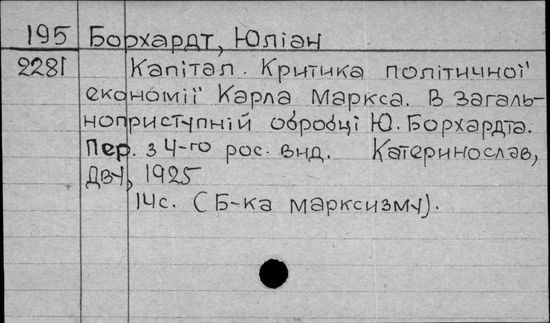 195 Борхардт, Юліан
2281 Капітал. Критика політичної
економії Карла Маркса. В загаль-
ноприступній обробці Ю. Борхардта.
Пер. з 4-го рос. вид. Катеринослав,
ДВУ, 1925
14с. (Б-ка марксизму).